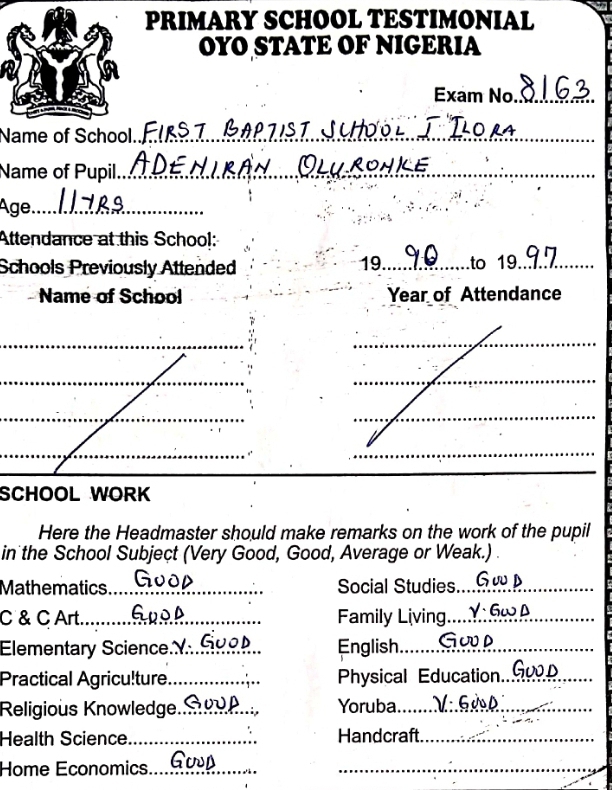 PRIMARY SCHOOL TESTIMONIAL
OYO STATE OF NIGERIA
Exam No. 8163
Name of School. FIRST BAPTIST SCHOOL I ILORA
Name of Pupil. ADENIRAN OLURONKE
Age. 11YRS
Attendance at this School:
Schools Previously Attended 19 90 to 19 97
Name of School Year of Attendance
SCHOOL WORK
Here the Headmaster should make remarks on the work of the pupil
in the School Subject (Very Good, Good, Average or Weak.)
Mathematics. GOOD Social Studies. GOOD
C & C Art. GOOD Family Living. V. GOOD
Elementary Science. V. GOOD English. GOOD
Practical Agriculture. Physical Education. GOOD
Religious Knowledge. GOOD Yoruba. V. GOOD
Health Science. Handcraft.
Home Economics. GOOD